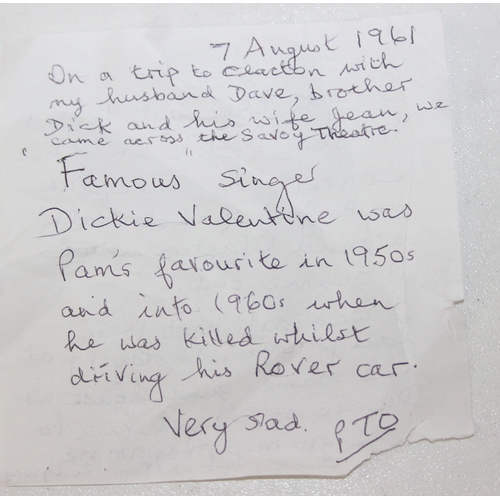 7 August 1961
On a trip to Clacton with
my husband Dave, brother
Dick and his wife Jean, we
"came across" the Savoy Theatre.
Famous singer
Dickie Valentine was
Pam's favourite in 1950s
and into 1960s when
he was killed whilst
driving his Rover car.
Very sad. PTO